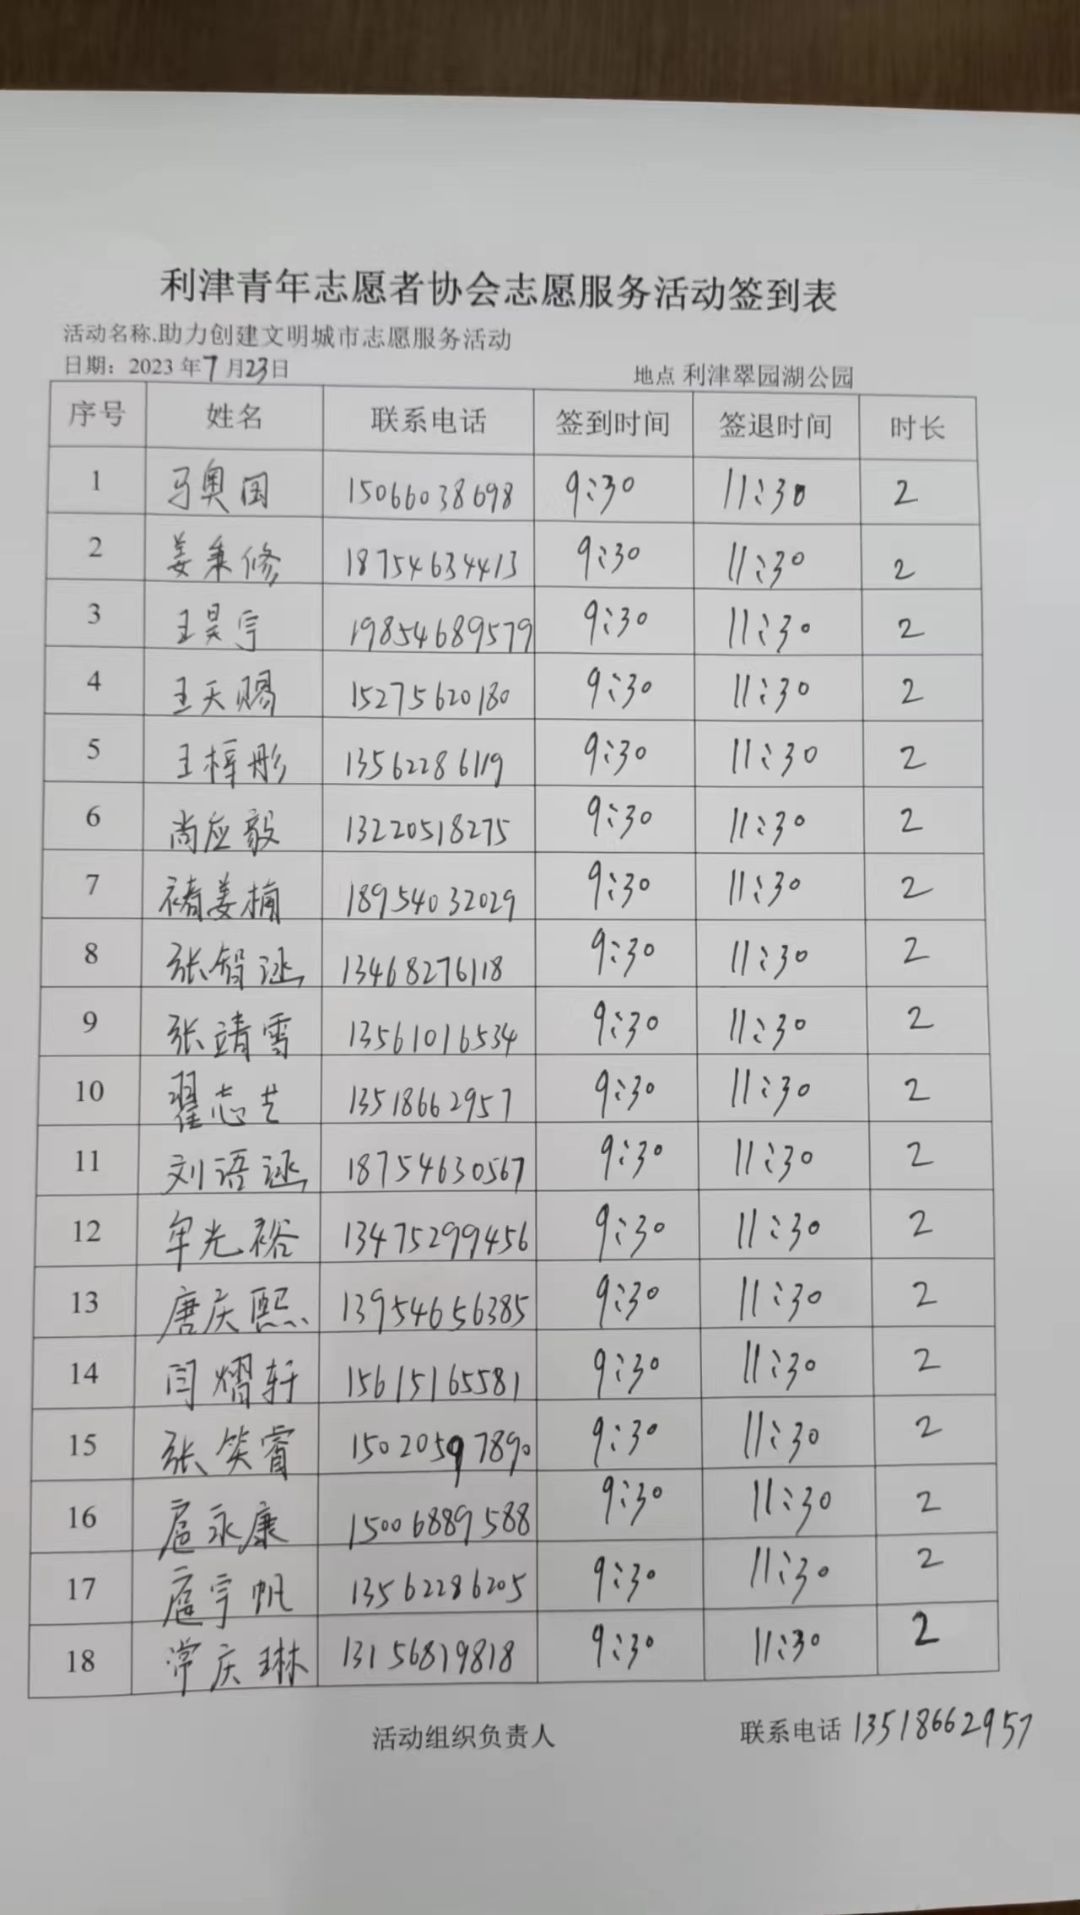 利津青年志愿者协会志愿服务活动签到表
活动名称.助力创建文明城市志愿服务活动
日期：2023年7月23日 地点 利津翠园湖公园
序号 姓名 联系电话 签到时间 签退时间 时长
1 马奥国 15066038698 9:30 11:30 2
2 姜秉修 18754634413 9:30 11:30 2
3 王昊宇 19854689579 9:30 11:30 2
4 王天赐 15275620180 9:30 11:30 2
5 王梓彤 13562286119 9:30 11:30 2
6 尚应毅 13220518275 9:30 11:30 2
7 褚姜楠 18954032029 9:30 11:30 2
8 张智涵 13468276118 9:30 11:30 2
9 张靖雪 13561016534 9:30 11:30 2
10 翟志芸 13518662957 9:30 11:30 2
11 刘语涵 18754630567 9:30 11:30 2
12 牟光裕 13475299456 9:30 11:30 2
13 唐庆熙 13954656385 9:30 11:30 2
14 闫熠轩 15615165581 9:30 11:30 2
15 张笑睿 15020597890 9:30 11:30 2
16 扈永康 15006889588 9:30 11:30 2
17 扈宇帆 13562286205 9:30 11:30 2
18 常庆琳 13156819818 9:30 11:30 2
活动组织负责人 联系电话 13518662957